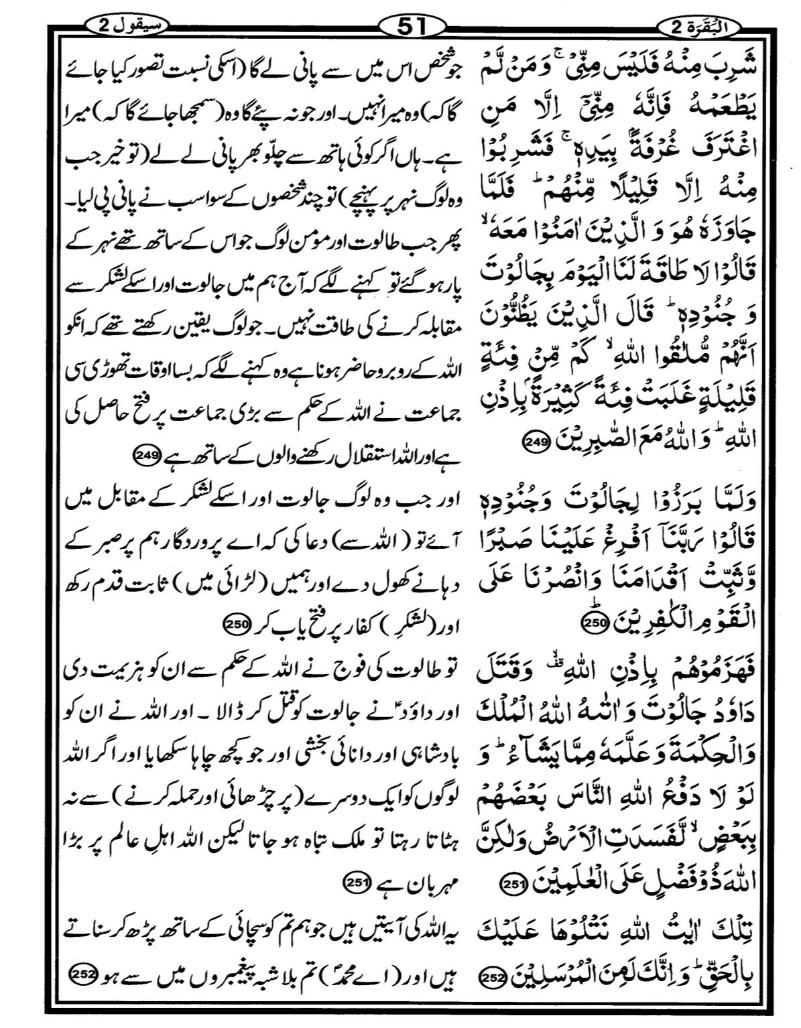 البَقَرَة 2
51
سيقول 2
شَرِبَ مِنۡهُ فَلَيۡسَ مِنِّىۡ ۚ وَمَنۡ لَّمۡ
يَطۡعَمۡهُ فَاِنَّهٗ مِنِّىۡۤ اِلَّا مَنِ
اغۡتَرَفَ غُرۡفَةًۢ بِيَدِهٖ ۚ فَشَرِبُوۡا
مِنۡهُ اِلَّا قَلِيۡلًا مِّنۡهُمۡ ؕ فَلَمَّا
جَاوَزَهٗ هُوَ وَ الَّذِيۡنَ اٰمَنُوۡا مَعَهٗ ۙ
قَالُوۡا لَا طَاقَةَ لَنَا الۡيَوۡمَ بِجَالُوۡتَ
وَ جُنُوۡدِهٖ ؕ قَالَ الَّذِيۡنَ يَظُنُّوۡنَ
اَنَّهُمۡ مُّلٰقُوا اللّٰهِ ۙ کَمۡ مِّنۡ فِئَةٍ
قَلِيۡلَةٍ غَلَبَتۡ فِئَةً کَثِيۡرَةًۢ بِاِذۡنِ
اللّٰهِ ؕ وَ اللّٰهُ مَعَ الصّٰبِرِيۡنَ 249
وَلَمَّا بَرَزُوۡا لِجَالُوۡتَ وَجُنُوۡدِهٖ
قَالُوۡا رَبَّنَآ اَفۡرِغۡ عَلَيۡنَا صَبۡرًا
وَّثَبِّتۡ اَقۡدَامَنَا وَانۡصُرۡنَا عَلَى
الۡقَوۡمِ الۡکٰفِرِيۡنَ ؕ 250
فَهَزَمُوۡهُمۡ بِاِذۡنِ اللّٰهِ ۙ وَقَتَلَ
دَاوٗدُ جَالُوۡتَ وَ اٰتٰٮهُ اللّٰهُ الۡمُلۡكَ
وَالۡحِکۡمَةَ وَ عَلَّمَهٗ مِمَّا يَشَآءُ ؕ وَ
لَوۡ لَا دَفۡعُ اللّٰهِ النَّاسَ بَعۡضَهُمۡ
بِبَعۡضٍ ۙ لَّفَسَدَتِ الۡاَرۡضُ وَلٰکِنَّ
اللّٰهَ ذُوۡ فَضۡلٍ عَلَى الۡعٰلَمِيۡنَ 251
تِلۡكَ اٰيٰتُ اللّٰهِ نَتۡلُوۡهَا عَلَيۡكَ
بِالۡحَـقِّ ؕ وَ اِنَّكَ لَمِنَ الۡمُرۡسَلِيۡنَ 252
جو شخص اس میں سے پانی لے گا (اسکی نسبت تصور کیا جائے
گا کہ) وہ میرا نہیں۔ اور جو نہ پئے گا وہ (سمجھا جائے گا کہ) میرا
ہے۔ ہاں اگر کوئی ہاتھ سے چلّو بھر پانی لے لے (تو خیر جب
وہ لوگ نہر پر پہنچے) تو چند شخصوں کے سوا سب نے پانی پی لیا۔
پھر جب طالوت اور مؤمن لوگ جو اس کے ساتھ تھے نہر کے
پار ہو گئے تو کہنے لگے کہ آج ہم میں جالوت اور اسکے لشکر سے
مقابلہ کرنے کی طاقت نہیں۔ جو لوگ یقین رکھتے تھے کہ انکو
اللہ کے روبرو حاضر ہونا ہے وہ کہنے لگے کہ بسا اوقات تھوڑی سی
جماعت نے اللہ کے حکم سے بڑی جماعت پر فتح حاصل کی
ہے اور اللہ استقلال رکھنے والوں کے ساتھ ہے 249
اور جب وہ لوگ جالوت اور اسکے لشکر کے مقابل میں
آئے تو (اللہ سے) دعا کی کہ اے پروردگار ہم پر صبر کے
دہانے کھول دے اور ہمیں (لڑائی میں) ثابت قدم رکھ
اور (لشکرِ) کفار پر فتح یاب کر 250
تو طالوت کی فوج نے اللہ کے حکم سے ان کو ہزیمت دی
اور داؤدؑ نے جالوت کو قتل کر ڈالا ۔ اور اللہ نے ان کو
بادشاہی اور دانائی بخشی اور جو کچھ چاہا سکھایا اور اگر اللہ
لوگوں کو ایک دوسرے (پر چڑھائی اور حملہ کرنے) سے نہ
ہٹاتا رہتا تو ملک تباہ ہو جاتا لیکن اللہ اہلِ عالم پر بڑا
مہربان ہے 251
یہ اللہ کی آیتیں ہیں جو ہم تم کو سچائی کے ساتھ پڑھ کر سناتے
ہیں اور (اے محمدؐ) تم بلا شبہ پیغمبروں میں سے ہو 252